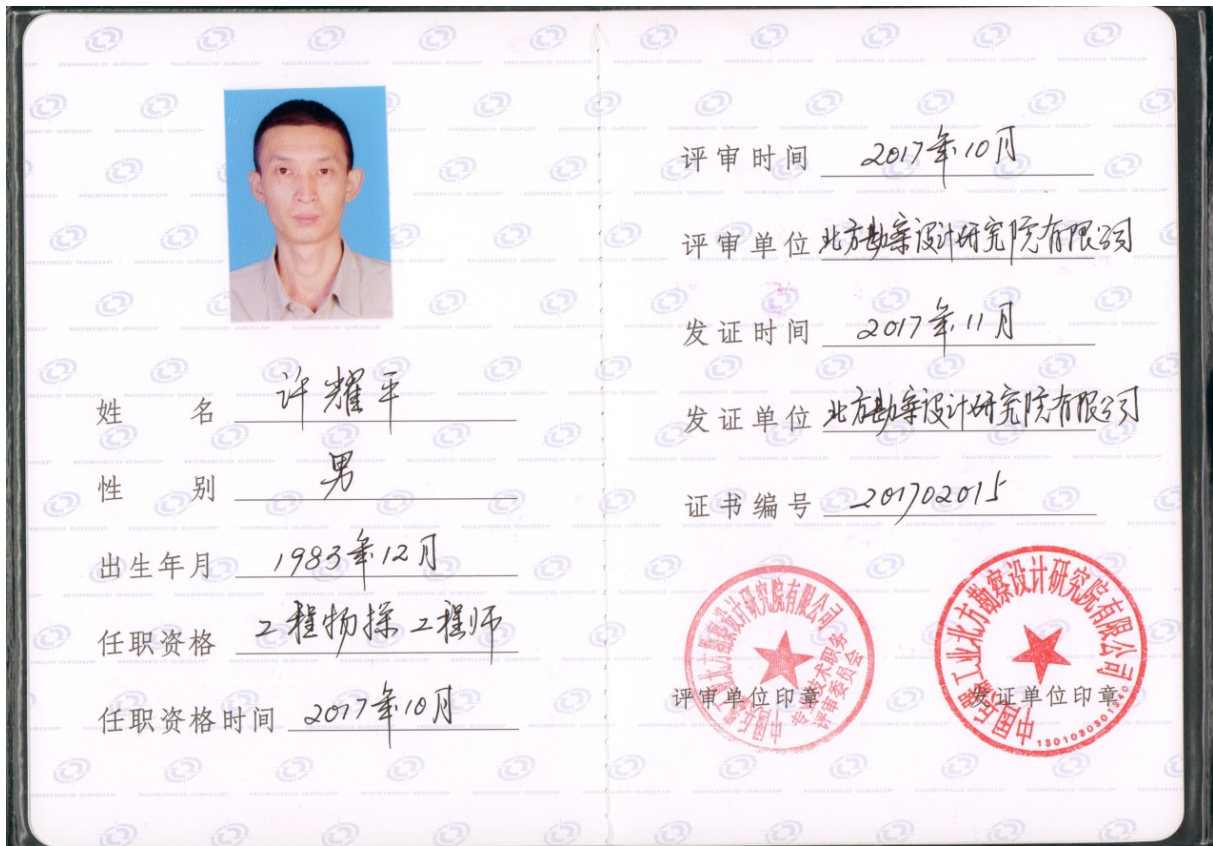 姓名 许耀平
性别 男
出生年月 1983年12月
任职资格 工程物探工程师
任职资格时间 2017年10月
评审时间 2017年10月
评审单位 北方勘察设计研究院有限公司
发证时间 2017年11月
发证单位 北方勘察设计研究院有限公司
证书编号 201702015
中国兵器工业北方勘察设计研究院有限公司
专业技术职务
评审委员会
评审单位印章
中国兵器工业北方勘察设计研究院有限公司
发证单位印章
NORINCO GROUP